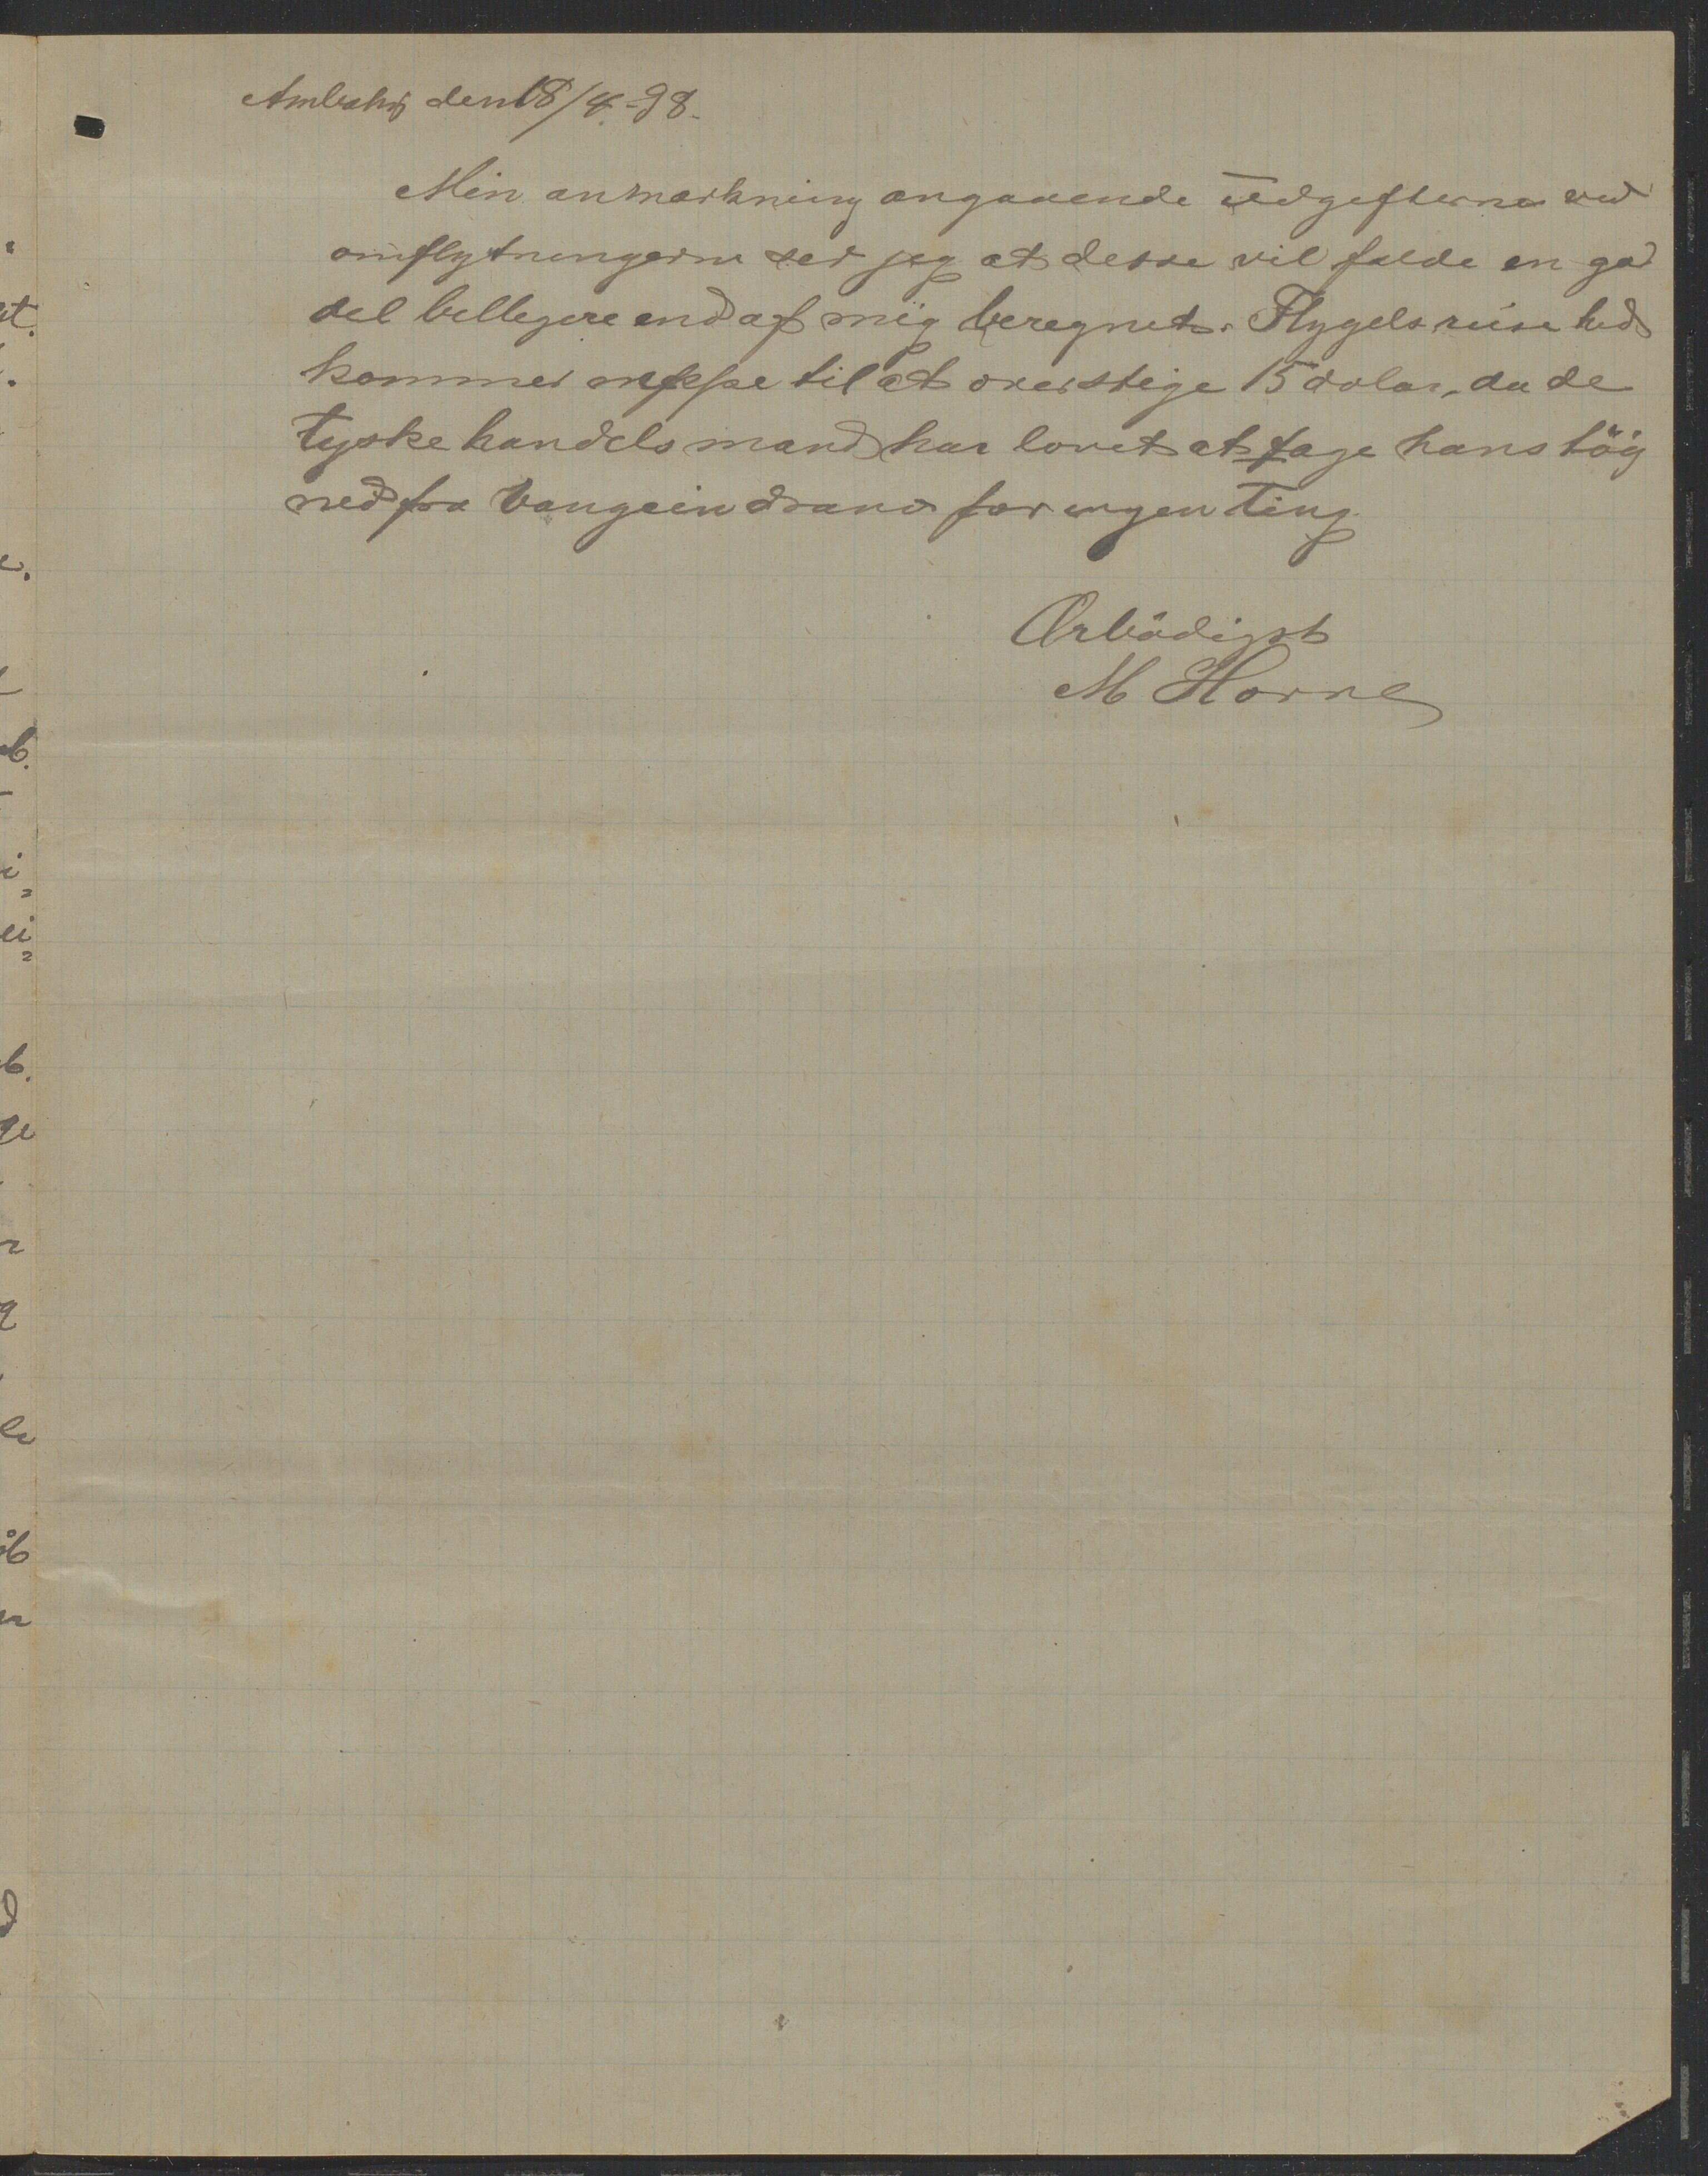 den 18/4.-98.
Min anmærkning angaaende udgifterna ved
omflytningerne ser jeg at desse vil falde en god
del billigere end af mig beregnet. Flygels reise hid
kommer neppe til at overstige 15 dolar, da de
tyske handelsmænd har lovet at tage hans tøi
ned fra Vangeindrano for ingen ting
Ærbödigst
M Horne